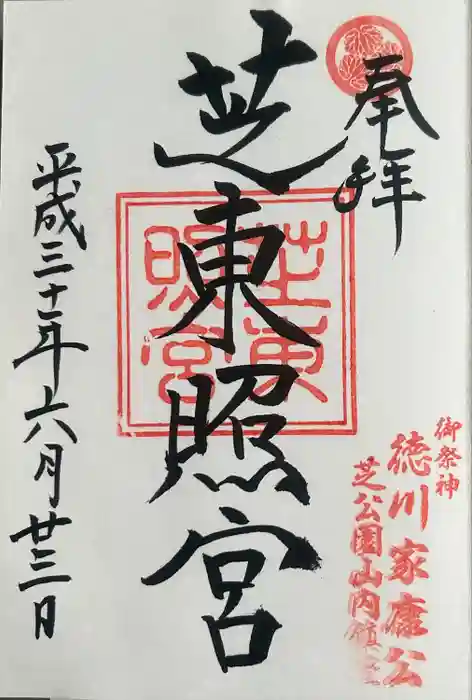 奉拝
御祭神
徳川家康公
芝公園山内鎮
芝東照宮
芝東
照宮
平成三十年六月廿三日